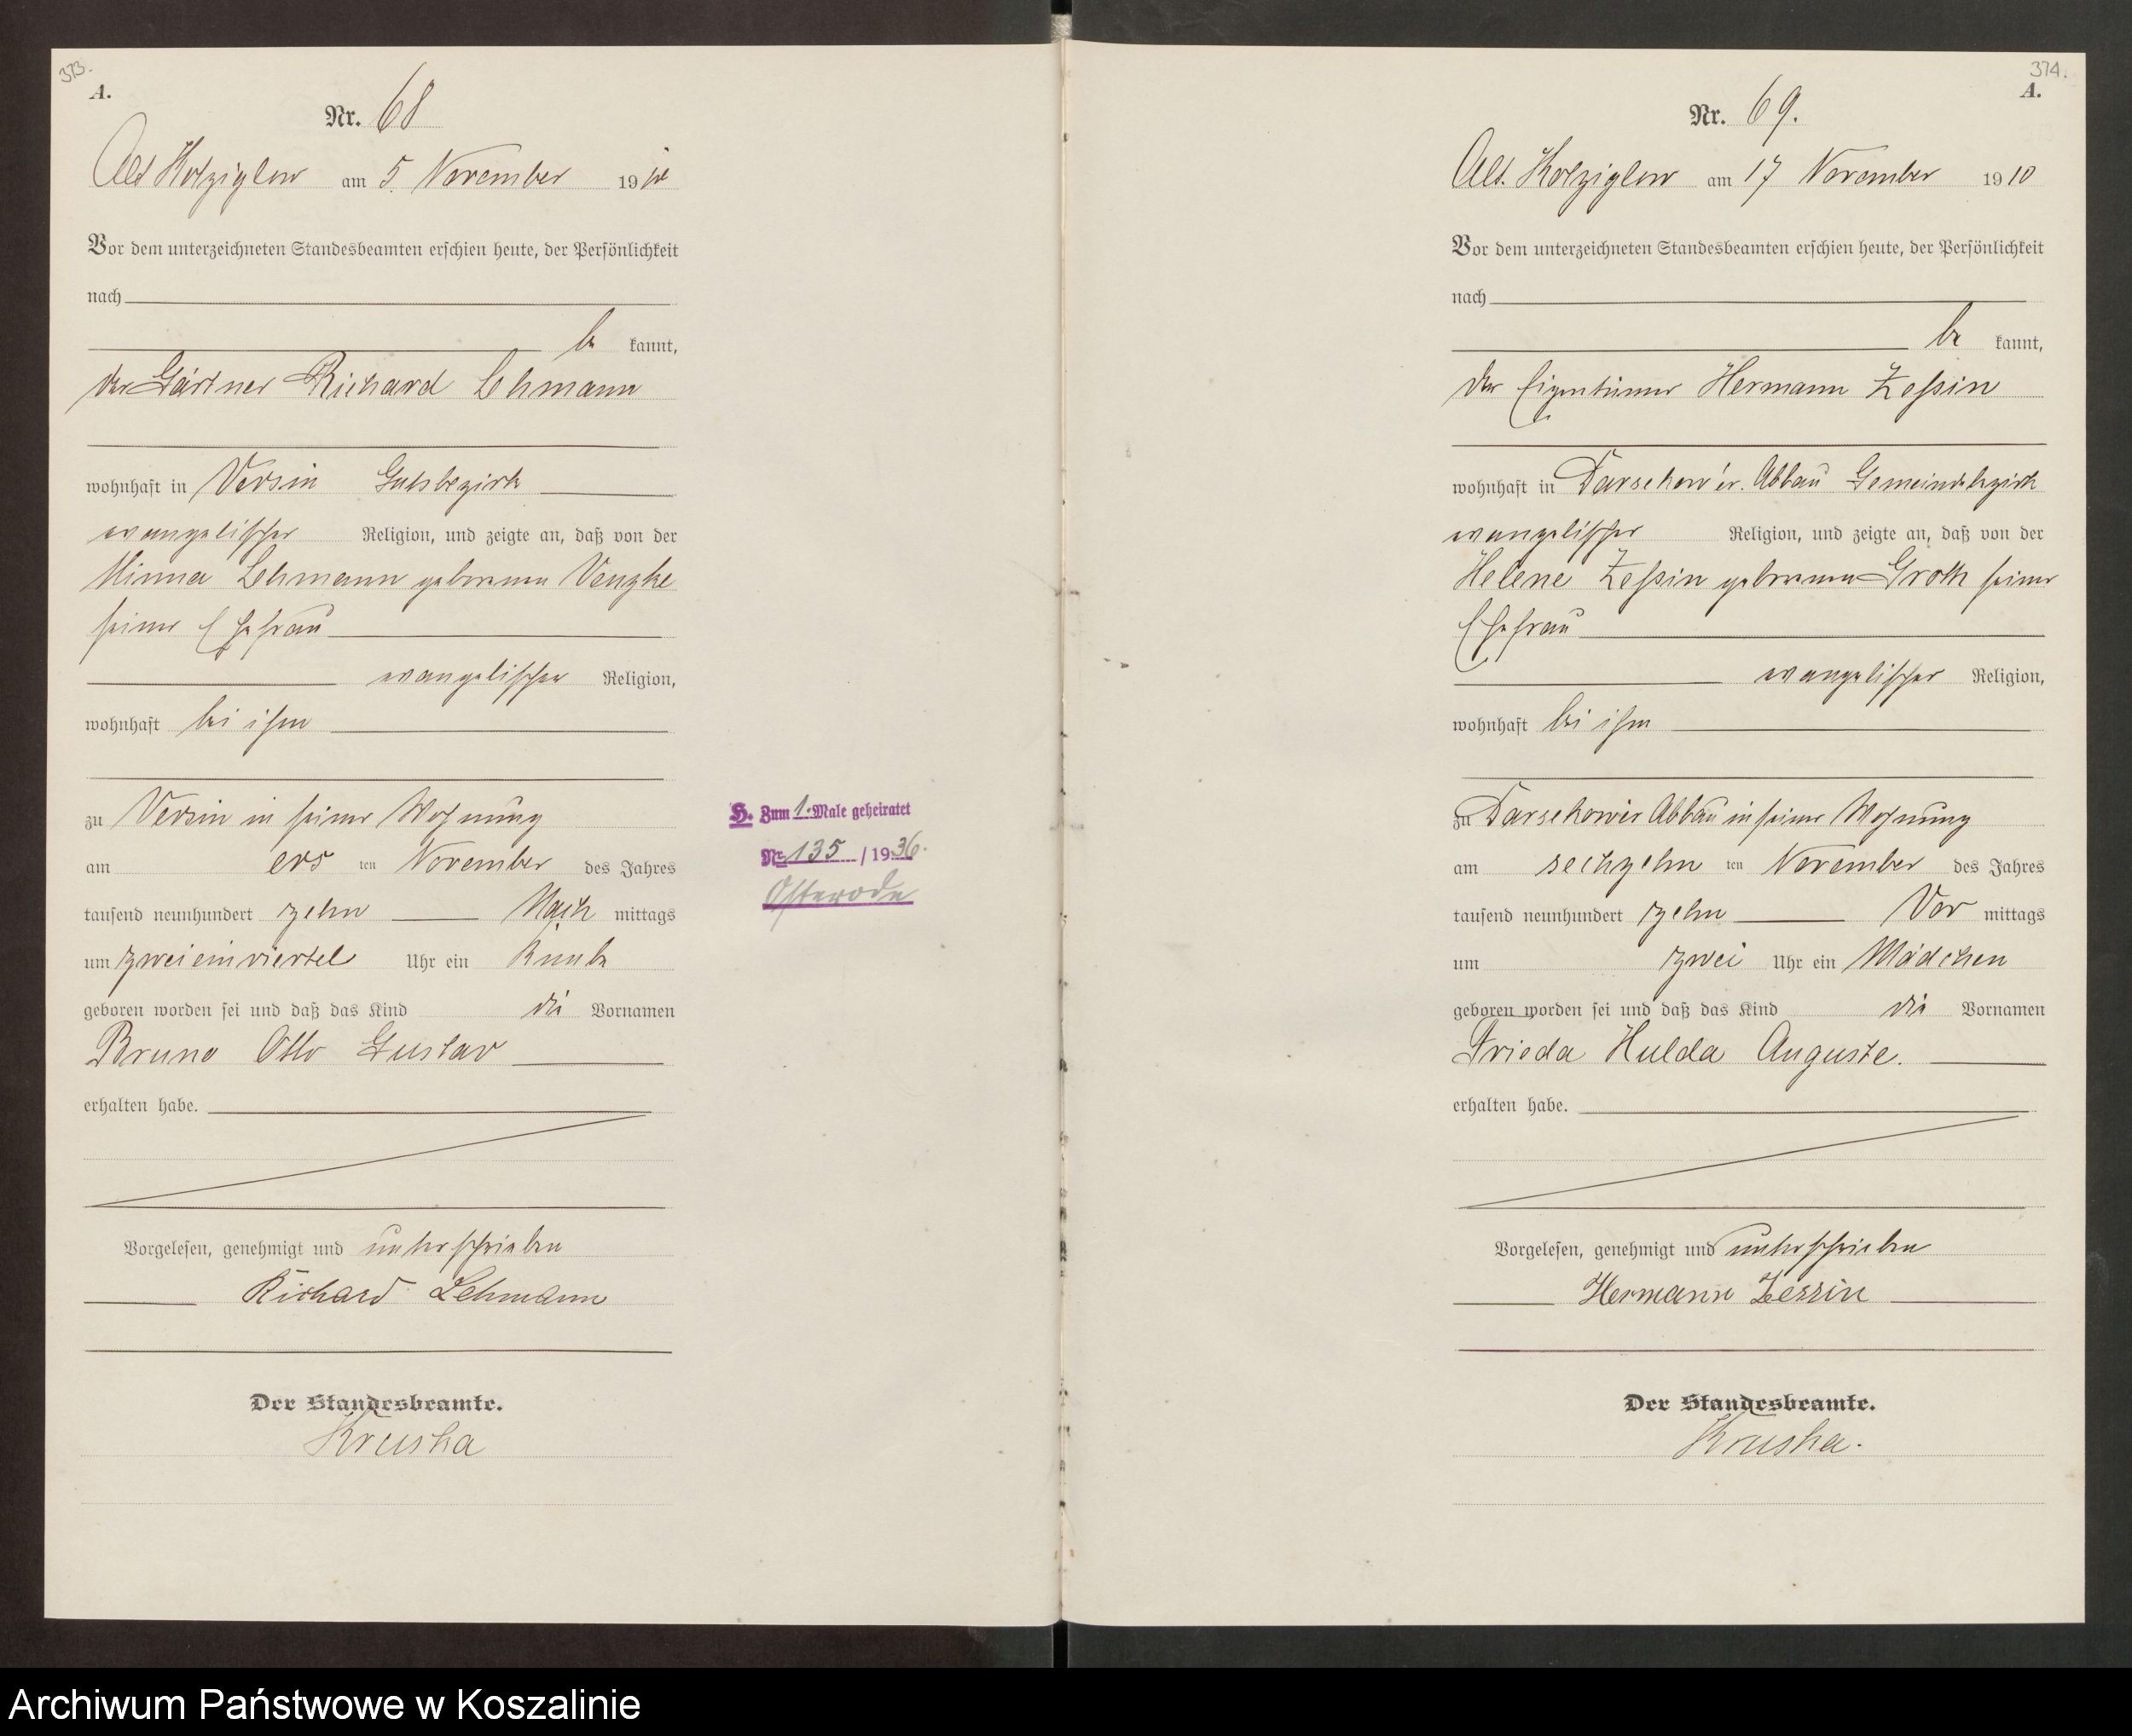 373.
A.
Nr. 68
Alt Kolziglow am 5 November 1910
Vor dem unterzeichneten Standesbeamten erschien heute, der Persönlichkeit
nach
be kannt,
der Gärtner Richard Lehmann
wohnhaft in Versin Gutsbezirk
evangelischer Religion, und zeigte an, daß von der
Minna Lehmann geborenen Venzke
seiner Ehefrau
evangelischer Religion,
wohnhaft bei ihm
zu Versin in seiner Wohnung
am ers ten November des Jahres
tausend neunhundert zehn Nach mittags
um zweieinviertel Uhr ein Knabe
geboren worden sei und daß das Kind die Vornamen
Bruno Otto Gustav
erhalten habe.
Vorgelesen, genehmigt und unterschrieben
Richard Lehmann
Der Standesbeamte.
Kruska
H. Zum 1. Male geheiratet
Nr. 135 / 1936.
Osterode
374.
A.
Nr. 69.
Alt. Kolziglow am 17 November 1910
Vor dem unterzeichneten Standesbeamten erschien heute, der Persönlichkeit
nach
be kannt,
der Eigentümer Hermann Zessin
wohnhaft in Darsekow'er. Abbau Gemeindebezirk
evangelischer Religion, und zeigte an, daß von der
Helene Zessin geborenen Groth seiner
Ehefrau
evangelischer Religion,
wohnhaft bei ihm
zu Darsekow'er Abbau in seiner Wohnung
am sechzehn ten November des Jahres
tausend neunhundert zehn Vor mittags
um zwei Uhr ein Mädchen
geboren worden sei und daß das Kind die Vornamen
Frieda Hulda Auguste.
erhalten habe.
Vorgelesen, genehmigt und unterschrieben
Hermann Zessin
Der Standesbeamte.
Kruska.
Archiwum Państwowe w Koszalinie